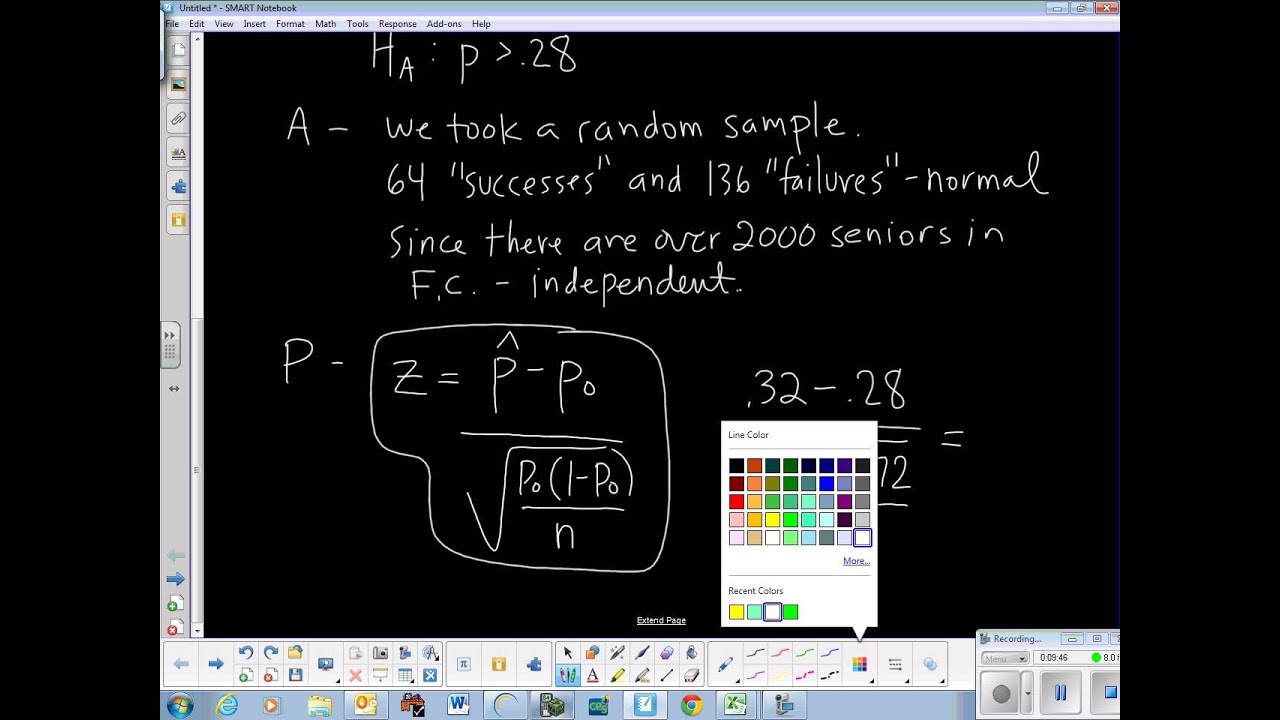 Untitled * - SMART Notebook
File Edit View Insert Format Math Tools Response Add-ons Help
H_A : p > .28
A - we took a random sample.
64 "successes" and 136 "failures" - normal
Since there are over 2000 seniors in
F.C. - independent.
P - z = p̂ - p₀
√ p₀(1-p₀)
n
.32 - .28
72 =
Line Color
More...
Recent Colors
Extend Page
Recording...
Menu
0:09:46
8.0